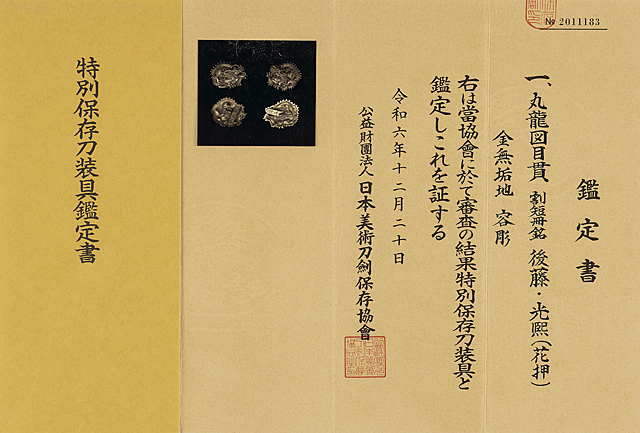 № 2011183
鑑定書
一、丸龍図目貫 割短冊銘 後藤・光熈（花押）
金無垢地 容彫
右は當協會に於て審査の結果特別保存刀装具と
鑑定しこれを証する
令和六年十二月二十日
公益財團法人 日本美術刀劍保存協會
特別保存刀装具鑑定書